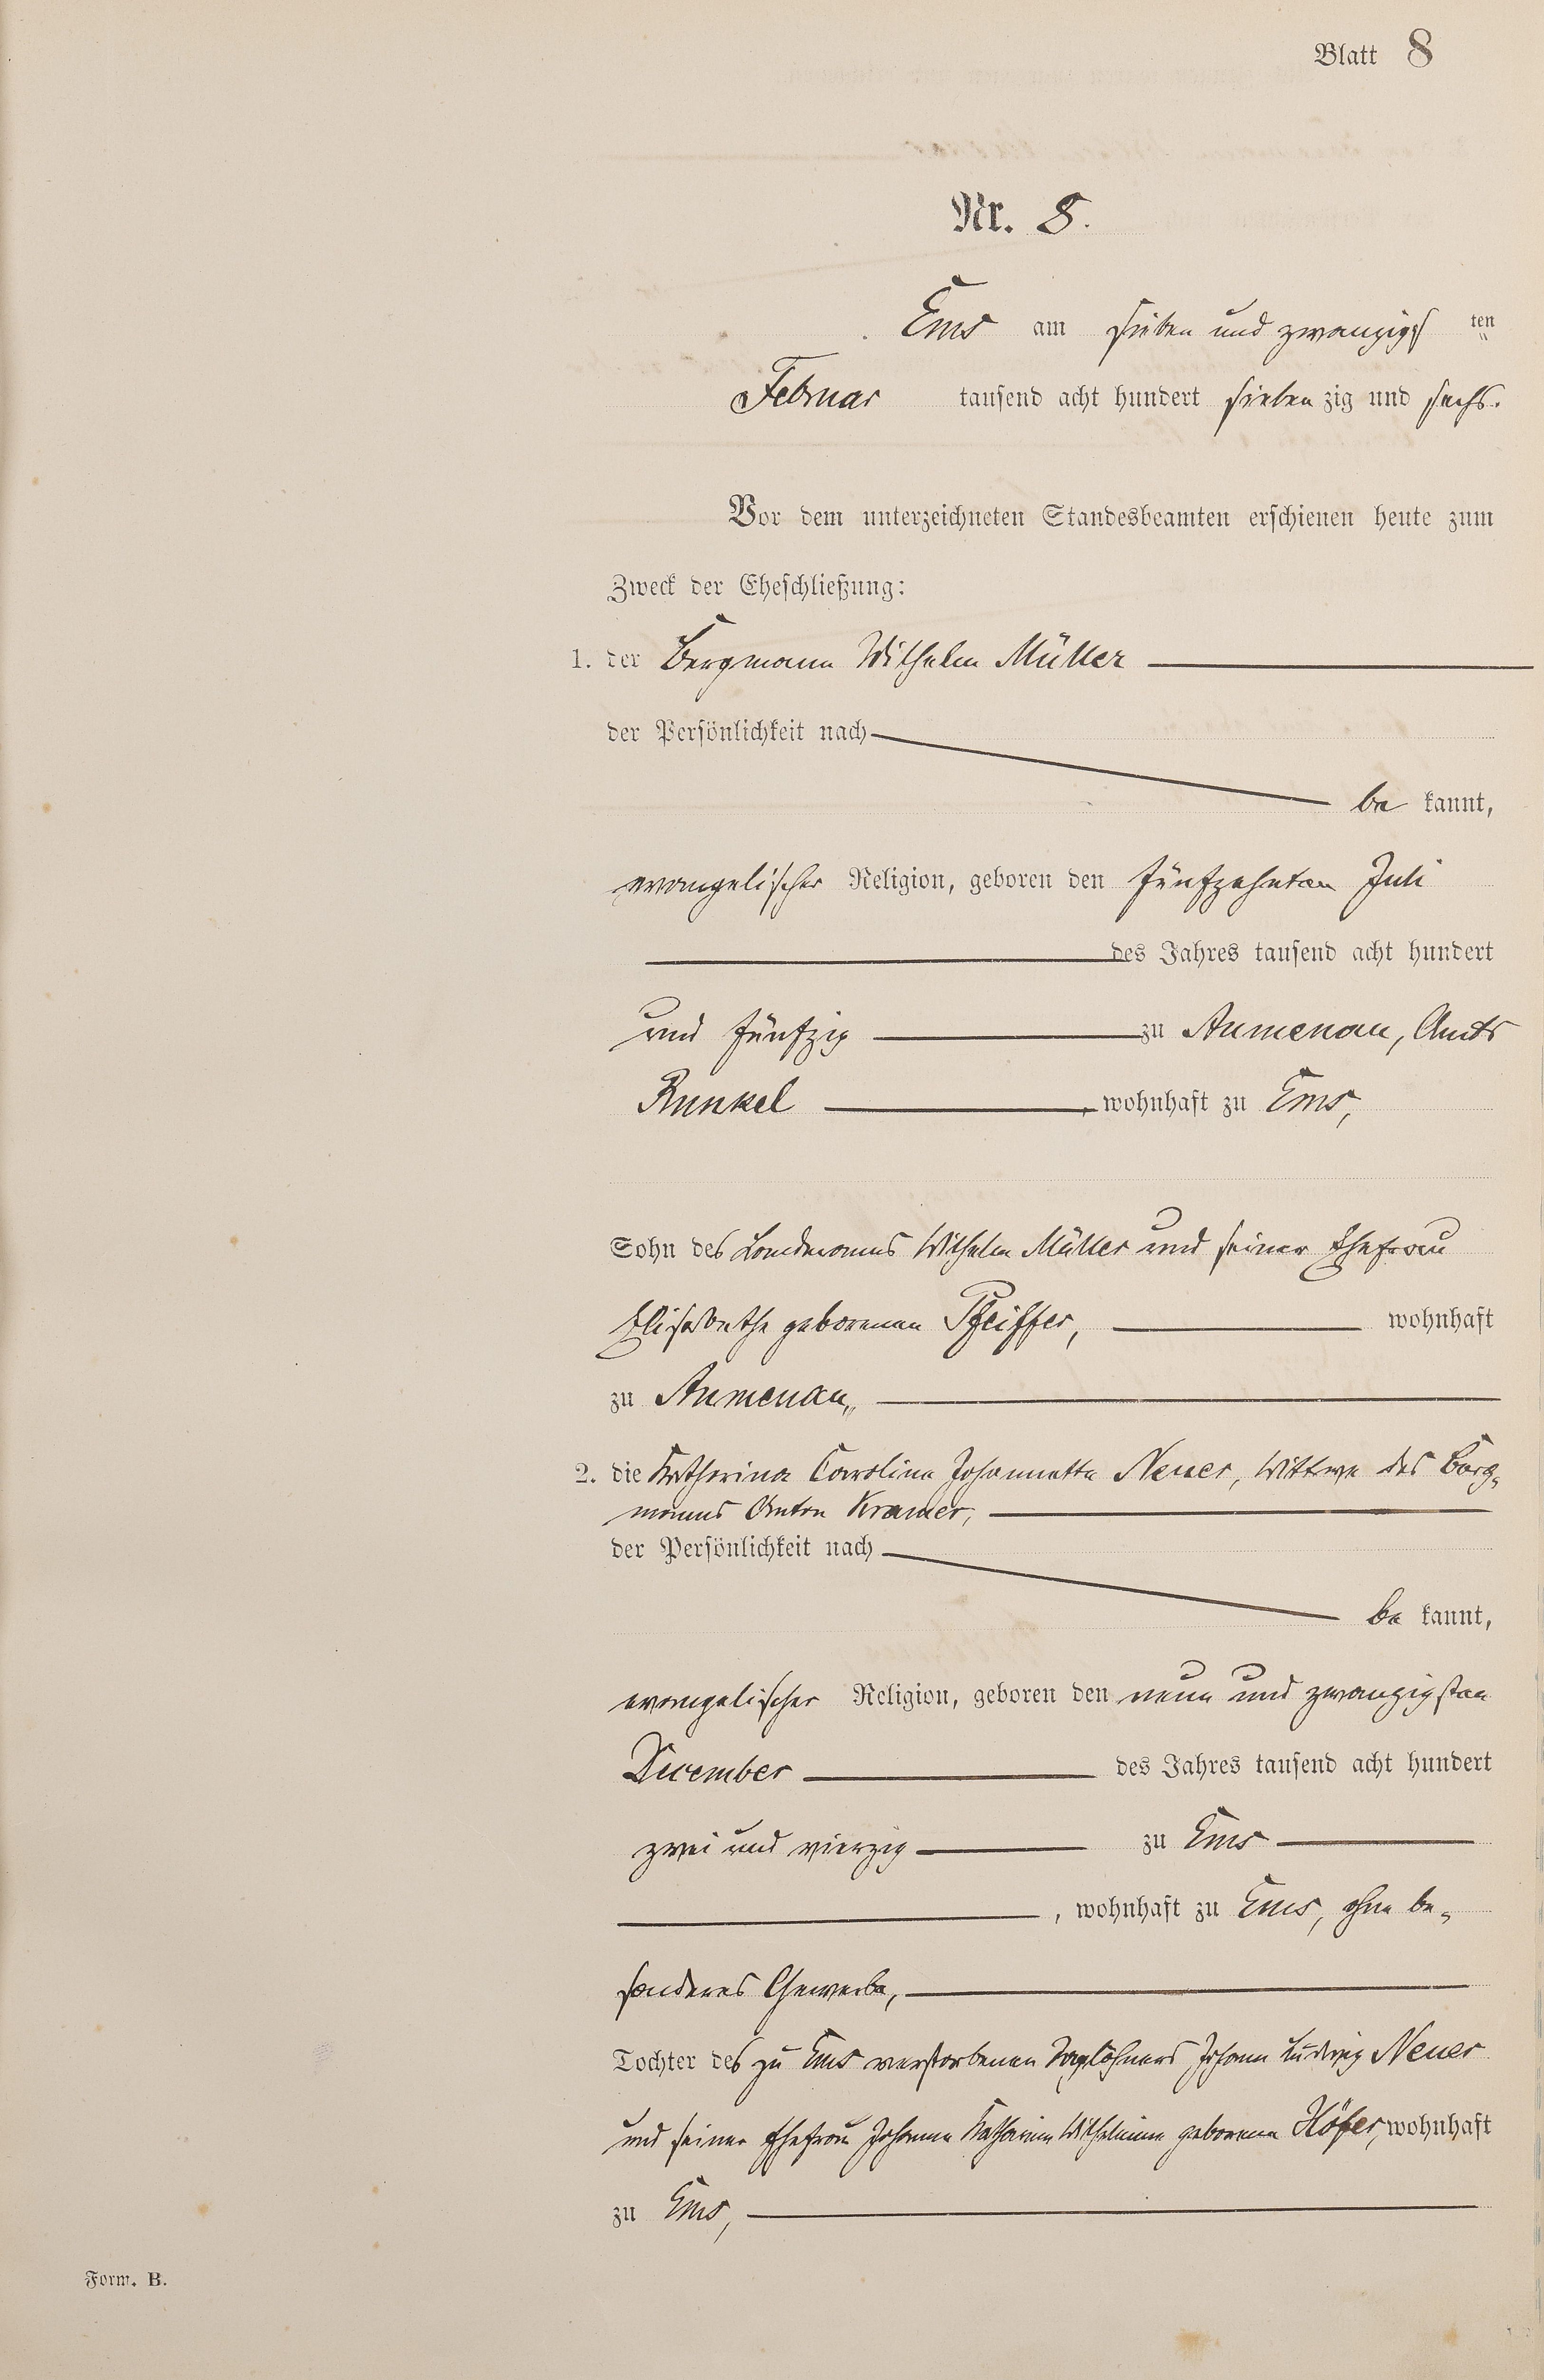 Blatt 8
Nr. 8.
Ems am sieben und zwanzigs ten
Februar tausend acht hundert sieben zig und sechs.
Vor dem unterzeichneten Standesbeamten erschienen heute zum
Zweck der Eheschließung:
1. der Bergmann Wilhelm Müller
der Persönlichkeit nach
be kannt,
evangelischer Religion, geboren den fünfzehnten Juli
des Jahres tausend acht hundert
und fünfzig zu Aumenau, Amts
Runkel , wohnhaft zu Ems,
Sohn des Landmanns Wilhelm Müller und seiner Ehefrau
Elisabethe geborenen Pfeiffer, wohnhaft
zu Aumenau,
2. die Katharina Carolina Johannetta Neuer, Wittwe des Berg-
manns Anton Kramer,
der Persönlichkeit nach
be kannt,
evangelischer Religion, geboren den neun und zwanzigsten
December des Jahres tausend acht hundert
zwei und vierzig zu Ems
, wohnhaft zu Ems, ohne be-
sonderes Gewerbe,
Tochter des zu Ems verstorbenen Taglöhners Johann Ludwig Neuer
und seiner Ehefrau Johanna Katharina Wilhelmine geborene Höfer, wohnhaft
zu Ems,
Form. B.